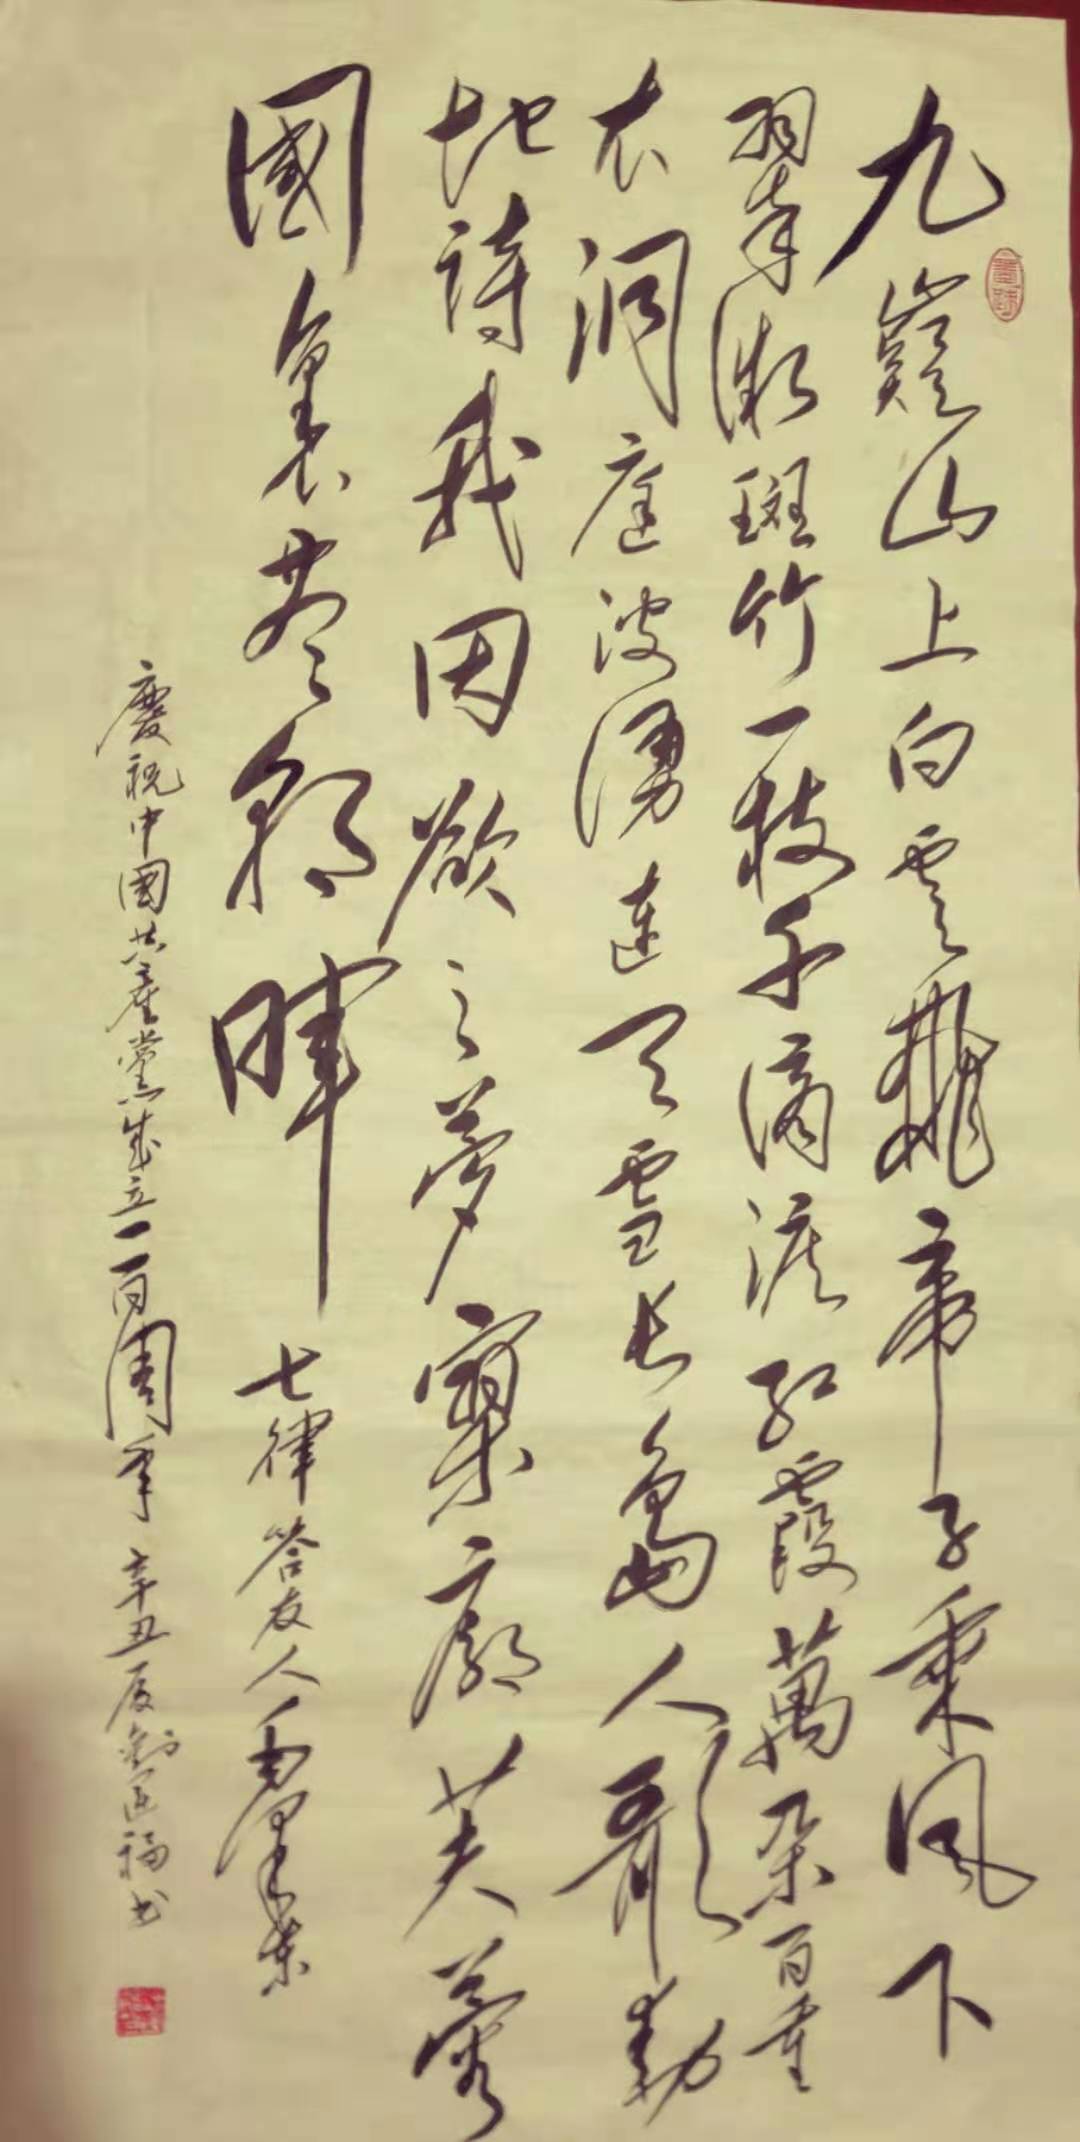 九嶷山上白雲飛帝子乘風下
翠微斑竹一枝千滴淚紅霞萬朵百重
衣洞庭波湧連天雪長島人歌動
地詩我因欲之夢寥廓芙蓉
國裏盡朝暉 七律答友人毛澤東
慶祝中國共產黨成立一百周年 辛丑夏劉福書